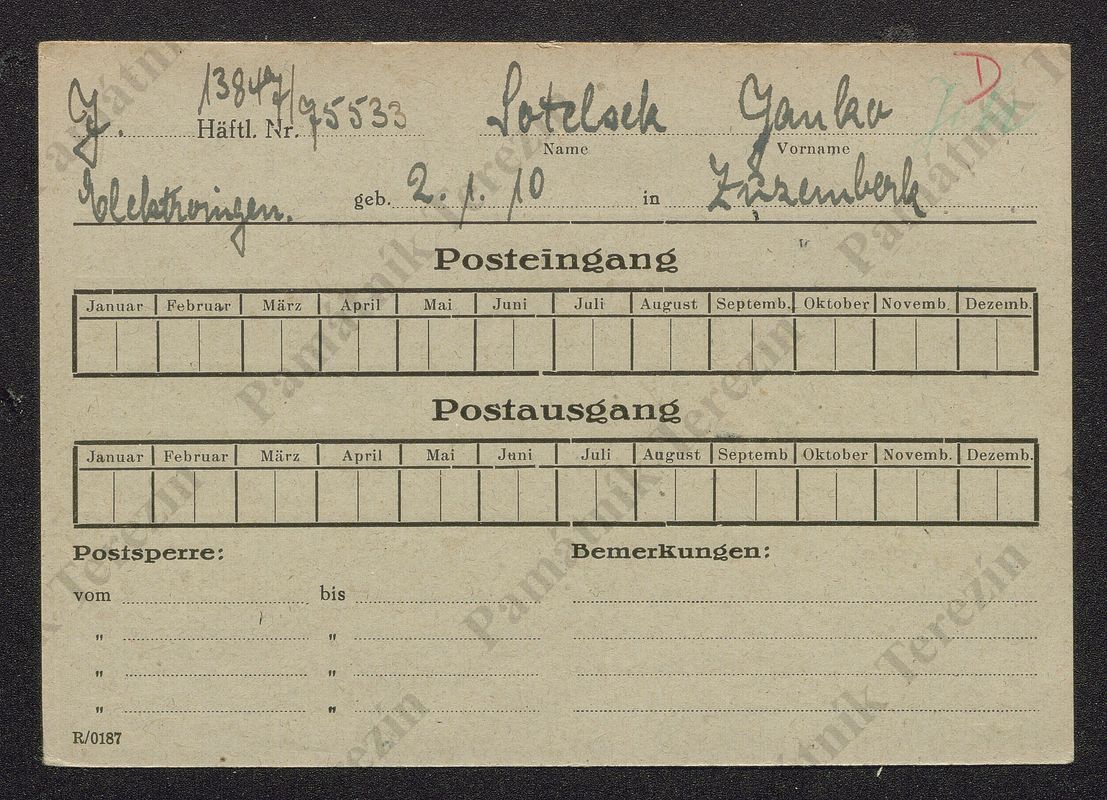 J. Häftl. Nr. 13847/75533 Sotelsek Janko D
Name Vorname
Elektroingen. geb. 2. 1. 10 in Zuzemberk
Posteingang
Januar Februar März April Mai Juni Juli August Septemb. Oktober Novemb. Dezemb.
Postausgang
Januar Februar März April Mai Juni Juli August Septemb Oktober Novemb. Dezemb.
Postsperre: Bemerkungen:
vom bis
" "
" "
" "
R/0187
Památník Terezín